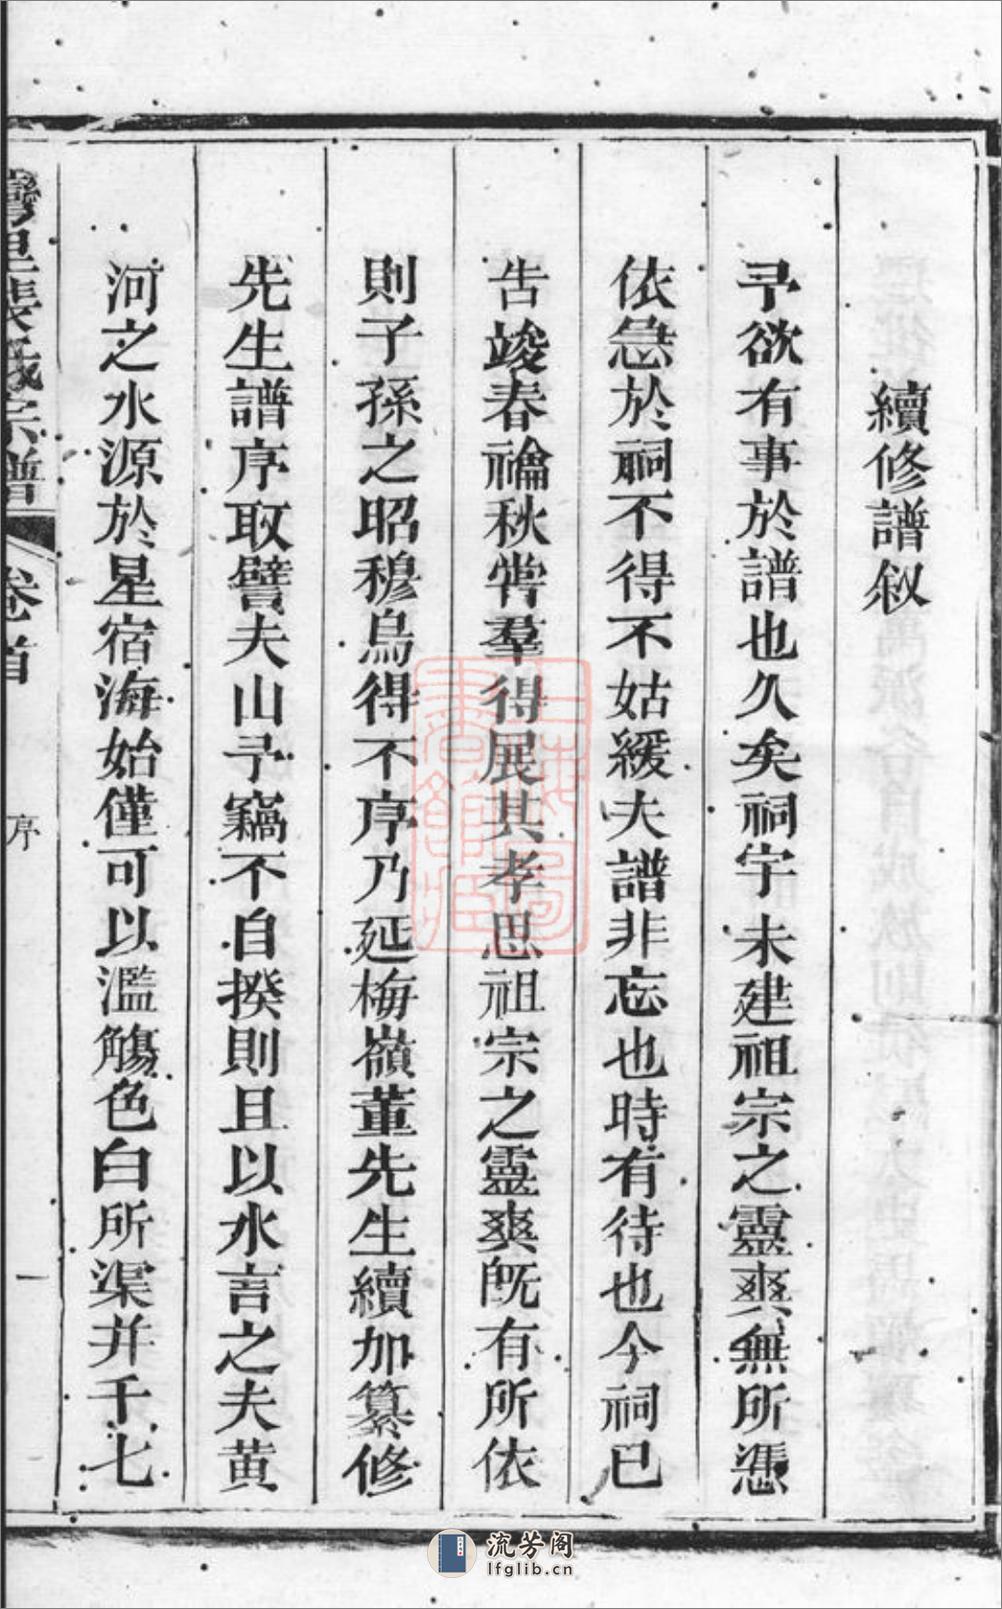 續修譜敘
予欲有事於譜也久矣祠宇未建祖宗之靈爽無所憑
依急於祠不得不姑緩夫譜非忘也時有待也今祠已
告竣春禴秋嘗羣得展其孝思祖宗之靈爽旣有所依
則子孫之昭穆烏得不序乃延梅嶺董先生續加纂修
先生譜序取譬夫山予竊不自揆則且以水言之夫黄
河之水源於星宿海始僅可以濫觴色白所渠并千七
灣里裴氏宗譜 卷首 序 一
上海圖書館藏
流芳阁
lfglib.cn